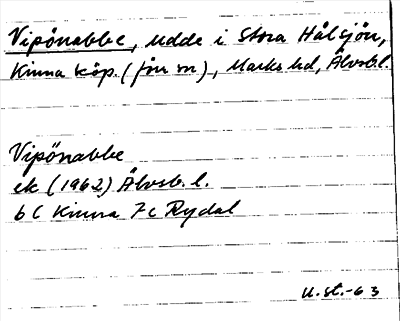 Vipönabbe, udde i Stora Hålsjön,
Kinna köp. (förr sn), Marks hd, Älvsb.l.
Vipönabbe
ek (1962) Älvsb. l.
6C Kinna 7c Rydal
U.st.-63